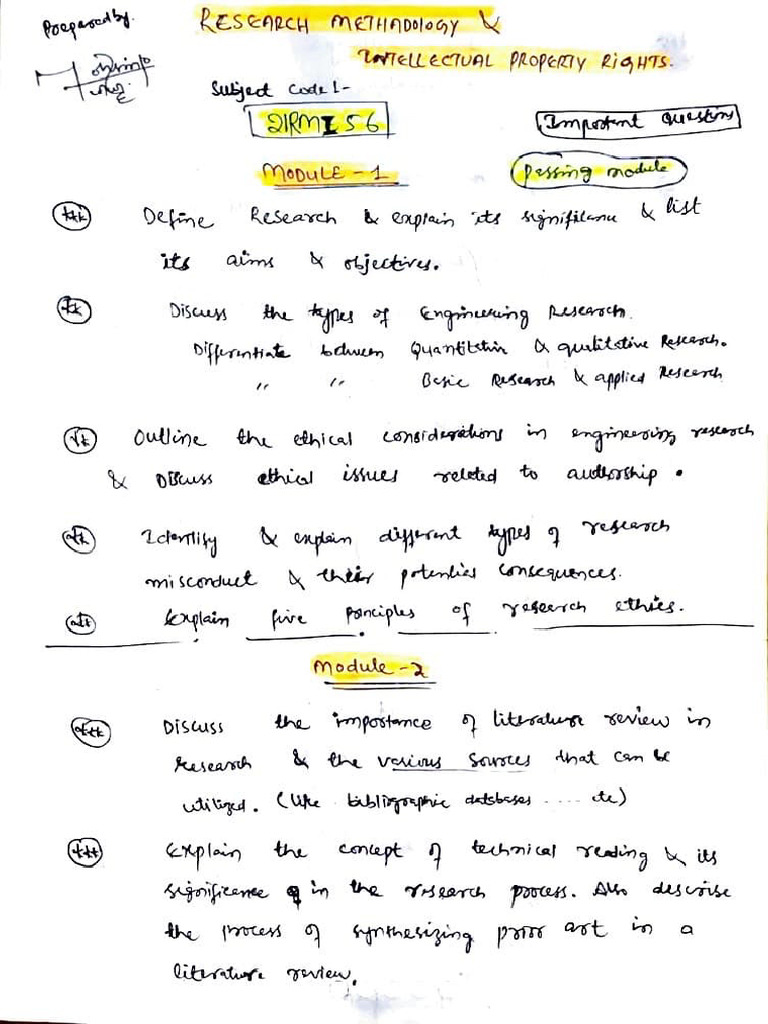 Prepared by.
RESEARCH METHADOLOGY &
INTELLECTUAL PROPERTY RIGHTS.
Subject Code :-
21RMI56
Important Questions
MODULE - 1
Passing module
*** Define Research & explain its significance & list
its aims & objectives.
** Discuss the types of Engineering Research.
Differentiate between Quantitative & qualitative Research.
" " Basic Research & applied Research
** Outline the ethical considerations in engineering research
& Discuss ethical issues related to authorship.
** Identify & explain different types of research
misconduct & their potential consequences.
** Explain five principles of research ethics.
Module - 2
*** Discuss the importance of literature review in
Research & the various sources that can be
utilized. (like bibliographic databases ..... etc)
*** Explain the concept of technical reading & its
significance in the research process. Also describe
the process of synthesizing prior art in a
literature review.